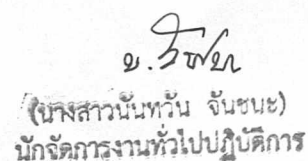 (นางสาวนันทวัน จันชนะ)
นักจัดการงานทั่วไปปฏิบัติการ